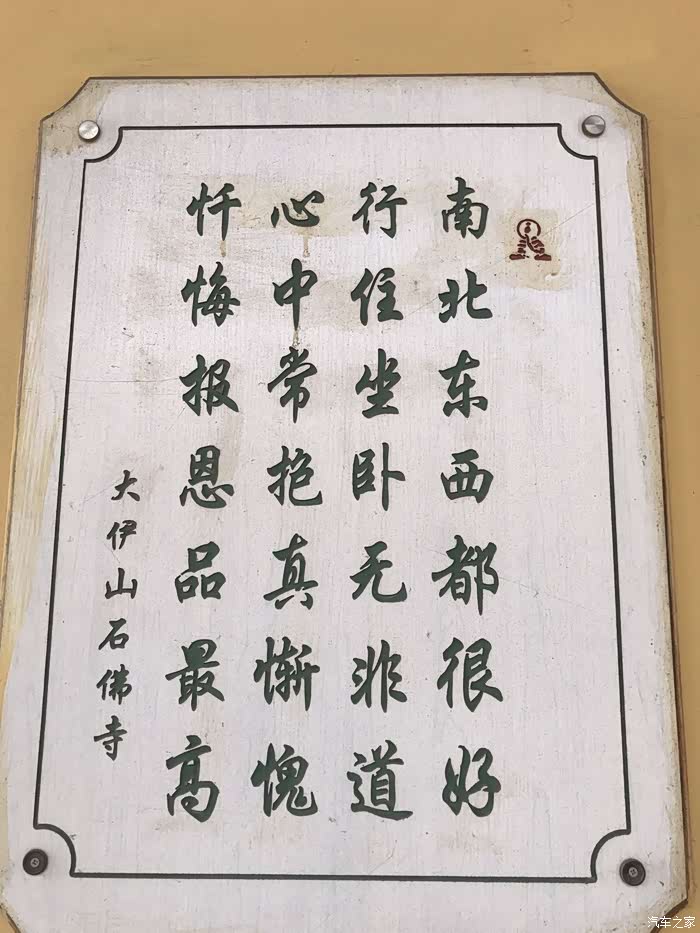 南北东西都很好
行住坐卧无非道
心中常抱真惭愧
忏悔报恩品最高
大伊山石佛寺
汽车之家